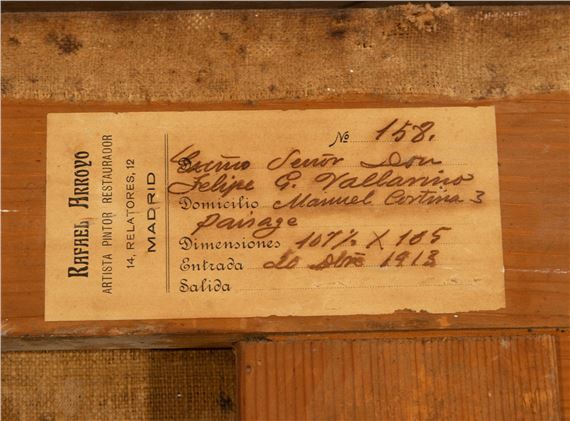 RAFAEL ARROYO
ARTISTA PINTOR RESTAURADOR
14, RELATORES, 12
MADRID
Nº 158.
Excmo Señor Don
Felipe G. Vallarino
Domicilio Manuel Cortina 3
paisage
Dimensiones 107½ X 105
Entrada 20 Dbre 1913
Salida